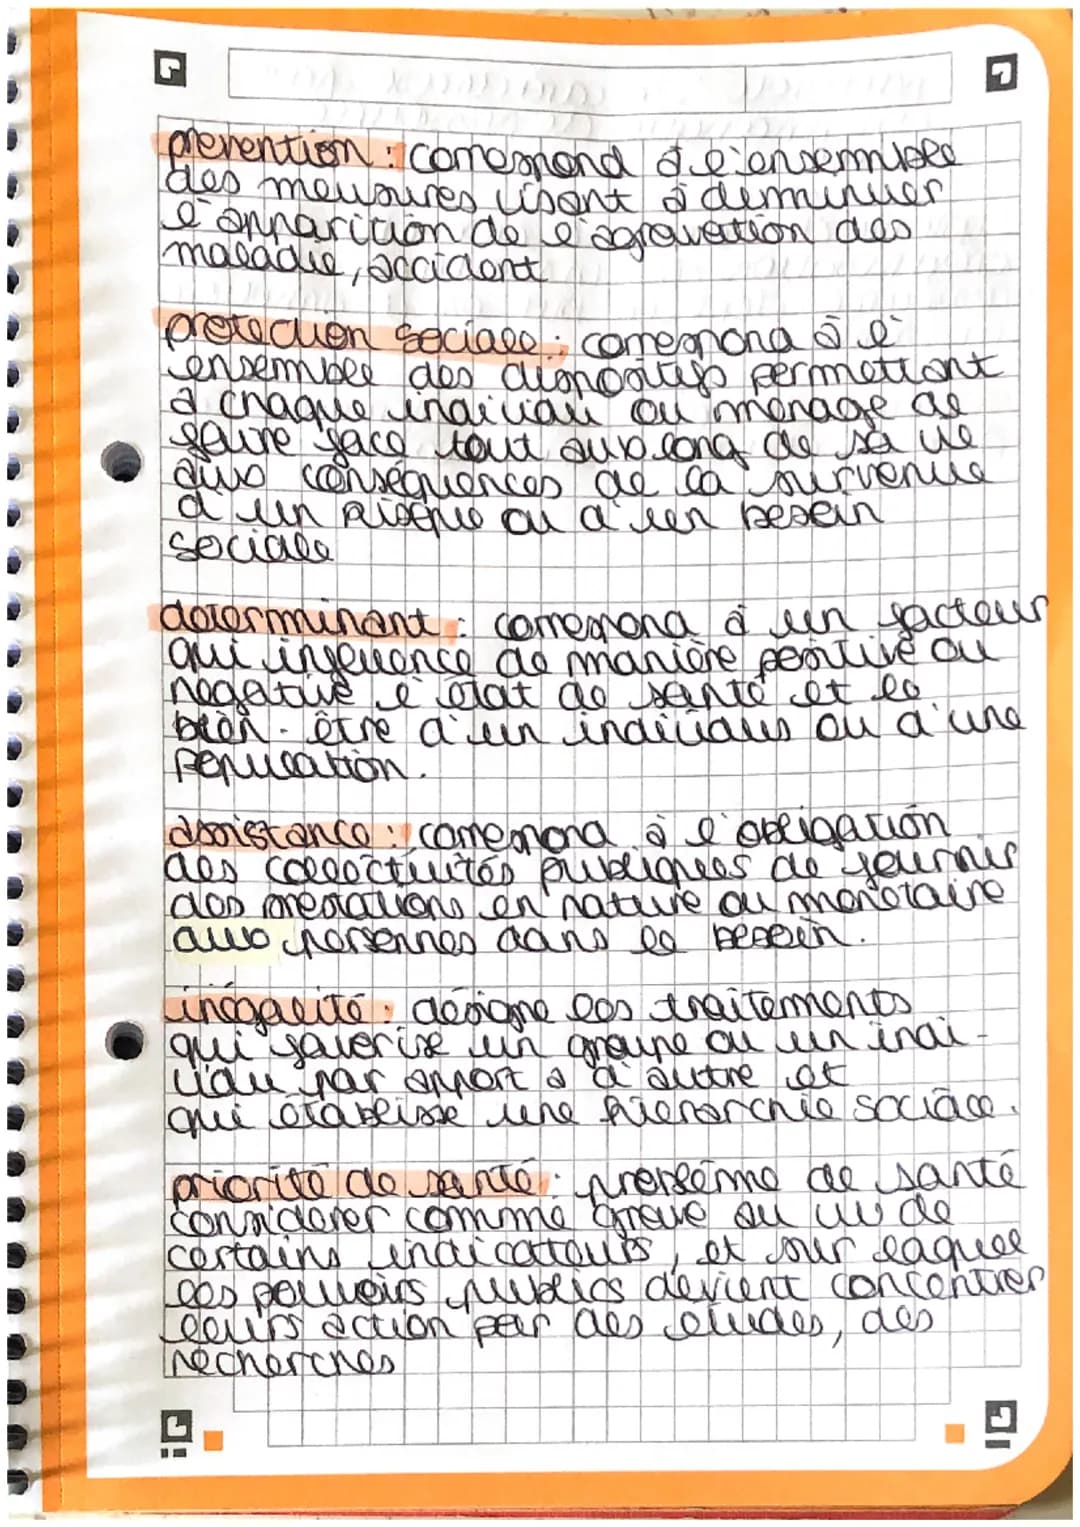 prévention : correspond à l'ensemble
des meusures visant à diminuer
l'apparition de l'agravation des
maladie, accident
protection sociale : correspond à l'
ensemble des dispositifs permettant
à chaque individu ou ménage de
faire face tout aux long de sa vie
aux conséquences de la survenue
d'un risque ou d'un besoin
sociale
determinant : correspond à un facteur
qui influence de manière positive ou
negative l'état de santé et le
bien-être d'un individus ou d'une
population.
assistance : correspond à l'obligation
des collectivités publiques de fournir
des prestations en nature ou monétaire
aux personnes dans le besoin.
inégalité : désigne les traitements
qui favorise un groupe ou un indi-
vidu par apport a d'autre et
qui établisse une hierarchie sociale.
priorité de santé : problème de santé
considerer comme grave au vu de
certains indicateurs, et sur laquel
les pouvoirs publics devient concentrer
leurs action par des etudes, des
recherches